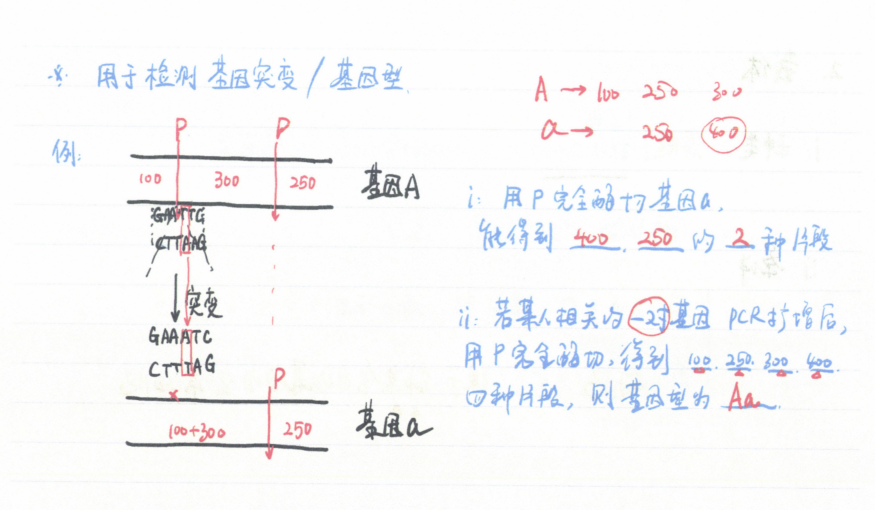 * 用于检测基因突变/基因型.
A → 100 250 300
a → 250 400
例:
P P
100 300 250 基因A
GAATTC
CTTAAG
i: 用P完全酶切基因a,
能得到 400. 250 的 2 种片段
突变
GAAATC
CTTTAG
ii: 若某人相关的一对基因 PCR扩增后,
用P完全酶切, 得到 100. 250. 300. 400.
四种片段, 则基因型为 Aa.
P
×
100+300 250 基因a